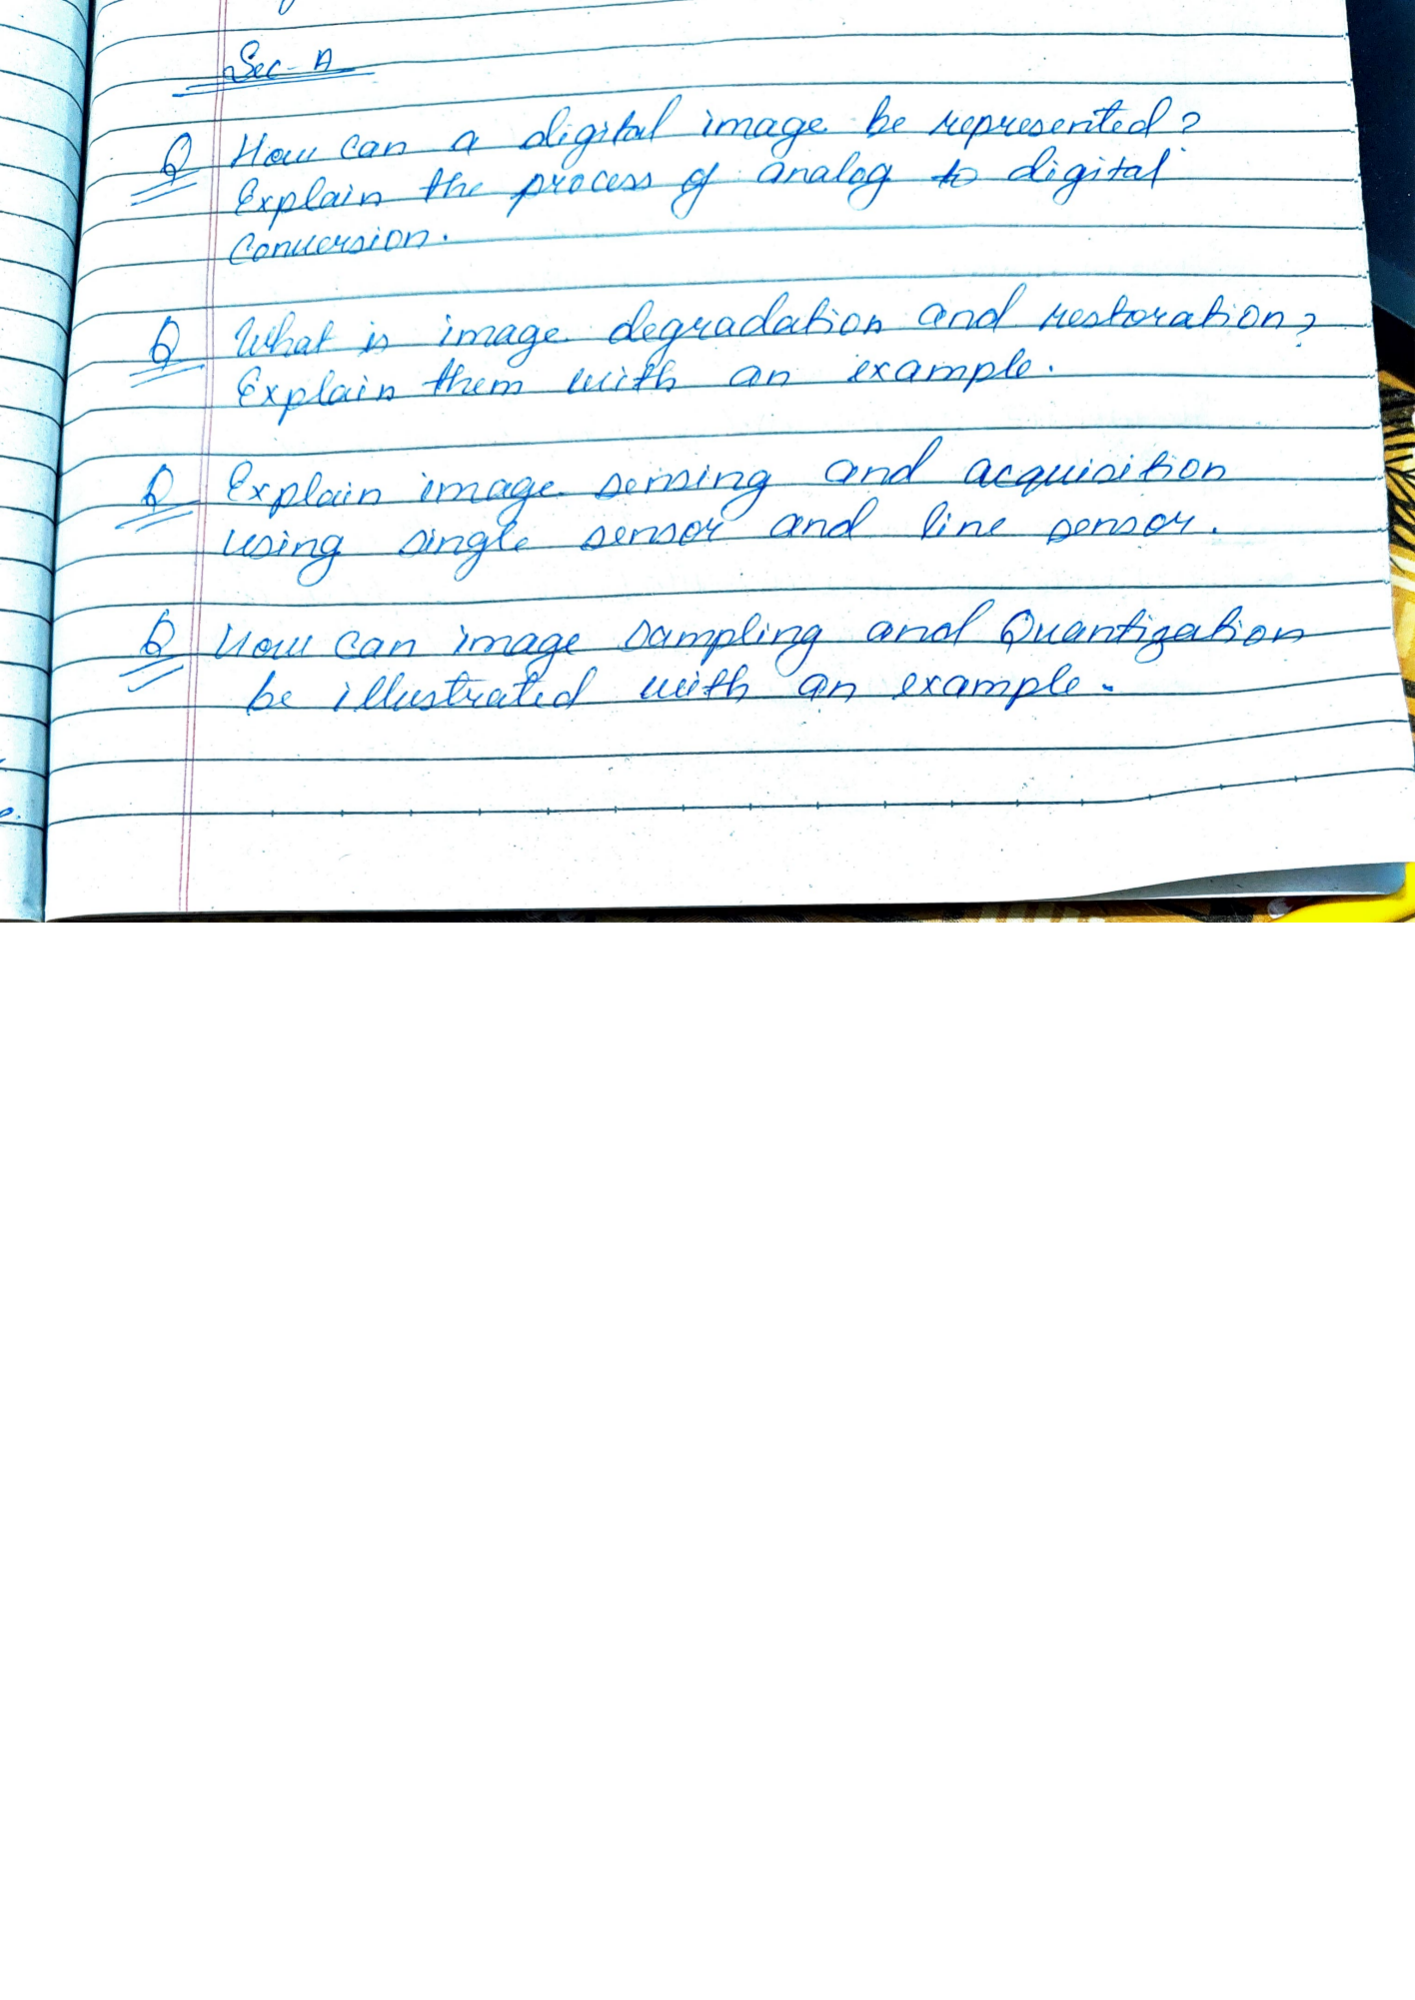 Sec - A
Q How can a digital image be represented?
Explain the process of analog to digital
Conversion.
Q What is image degradation and restoration?
Explain them with an example.
Q Explain image sensing and acquisition
using single sensor and line sensor.
Q How can image sampling and Quantization
be illustrated with an example.